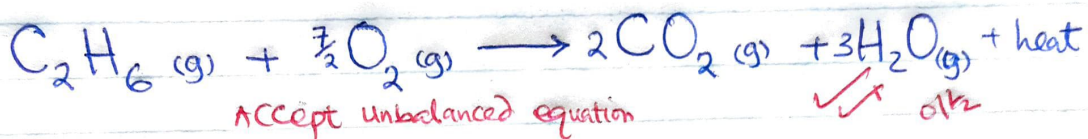 C₂H₆ (g) + 7/2 O₂ (g) → 2CO₂ (g) + 3H₂O(g) + heat
ACCept unbalanced equation ✓✓